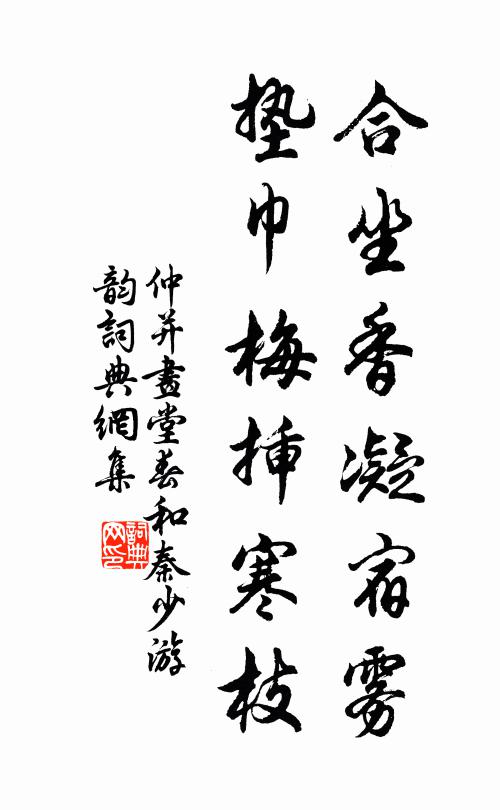 合坐香凝宿雾
垫巾梅插寒枝
仲并畫堂春和秦少游
韵詞典網集
詞典网印